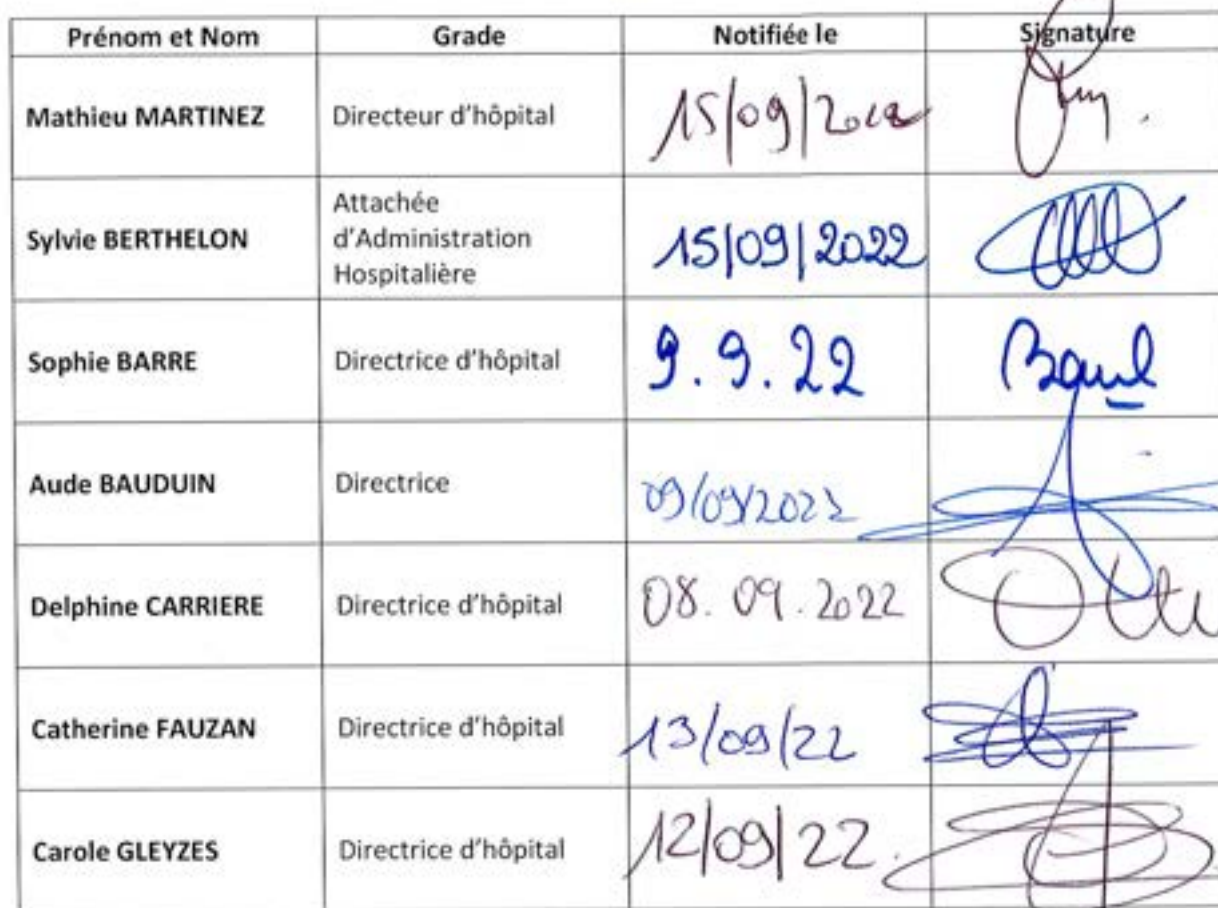 Prénom et Nom Grade Notifiée le Signature
Mathieu MARTINEZ Directeur d'hôpital 15/09/2022
Attachée
Sylvie BERTHELON d'Administration 15/09/2022
Hospitalière
Sophie BARRE Directrice d'hôpital 9.9.22
Aude BAUDUIN Directrice 09/09/2022
Delphine CARRIERE Directrice d'hôpital 08.09.2022
Catherine FAUZAN Directrice d'hôpital 13/09/22
Carole GLEYZES Directrice d'hôpital 12/09/22.